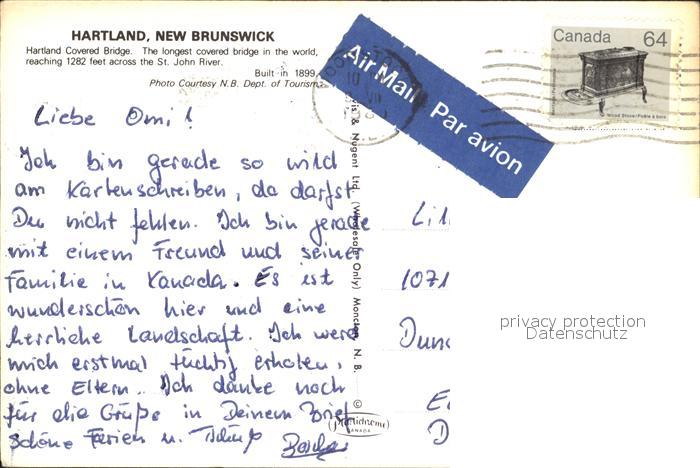 HARTLAND, NEW BRUNSWICK
Hartland Covered Bridge. The longest covered bridge in the world,
reaching 1282 feet across the St. John River.
Built in 1899.
Photo Courtesy N.B. Dept. of Tourism.
Air Mail Par avion
Canada 64
Wood Stove/Poêle à bois
Liebe Omi!
Ich bin gerade so wild
am Kartenschreiben, da darfst
Du nicht fehlen. Ich bin gerade
mit einem Freund und seiner
Familie in Kanada. Es ist
wunderschön hier und eine
herrliche Landschaft. Ich werd
mich erstmal tüchtig erholen,
ohne Eltern. Ich danke noch
für die Grüße in Deinem Brief
Schöne Ferien u. Tschüß
& Nugent Ltd. (Wholesale Only) Moncton, N. B.
©
Plastichrome
CANADA
Lil
1071
Dun
privacy protection
Datenschutz